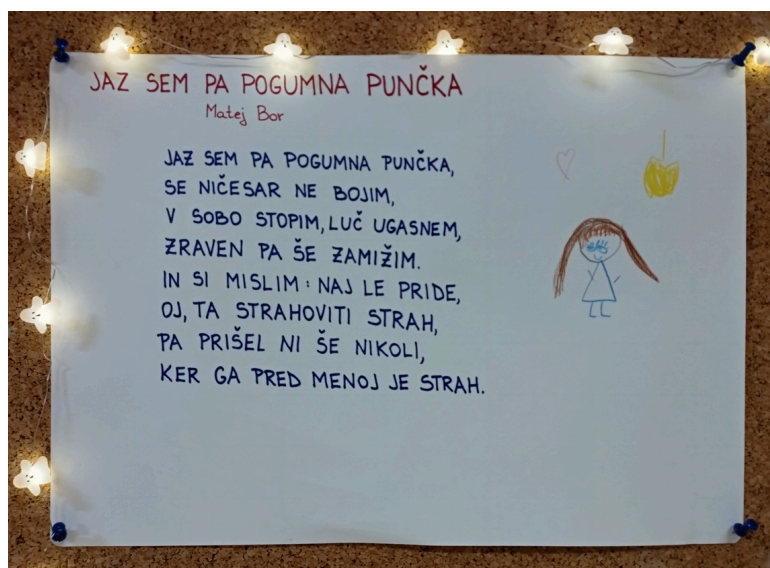 JAZ SEM PA POGUMNA PUNČKA
Matej Bor
JAZ SEM PA POGUMNA PUNČKA,
SE NIČESAR NE BOJIM,
V SOBO STOPIM, LUČ UGASNEM,
ZRAVEN PA ŠE ZAMIŽIM.
IN SI MISLIM: NAJ LE PRIDE,
OJ, TA STRAHOVITI STRAH,
PA PRIŠEL NI ŠE NIKOLI,
KER GA PRED MENOJ JE STRAH.